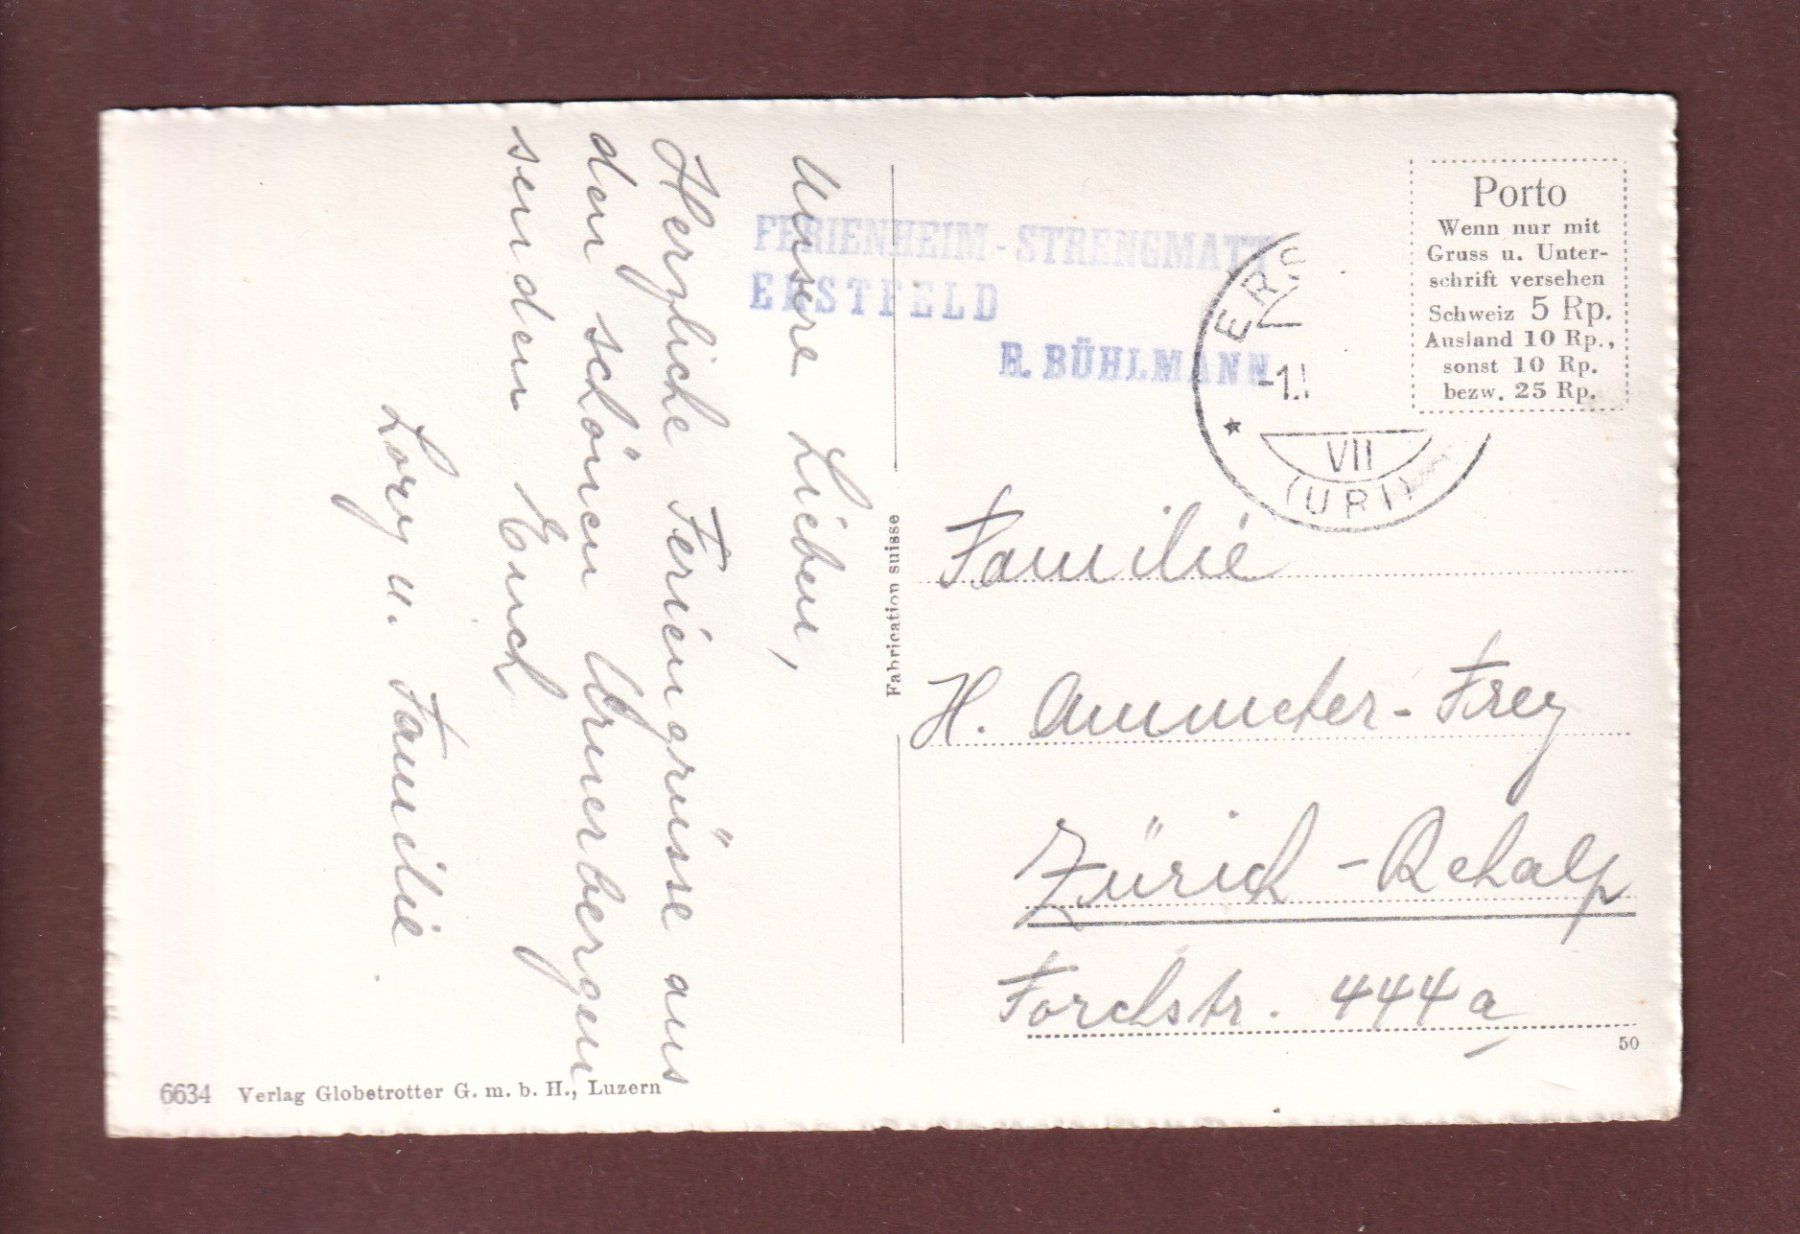 Unsere Lieben,
Herzliche Feriengrüsse aus
den schönen Urnerbergen
senden Euch
Lory u. Familie
FERIENHEIM - STRENGMATT
ERSTFELD
R. BÜHLMANN
Porto
Wenn nur mit
Gruss u. Unter-
schrift versehen
Schweiz 5 Rp.
Ausland 10 Rp.,
sonst 10 Rp.
bezw. 25 Rp.
ERS
-1.
VII
(URI)
Fabrication suisse
Familie
H. Ammeter-Frey
Zürich - Rehalp
Forchstr. 444a
50
6634 Verlag Globetrotter G. m. b. H., Luzern